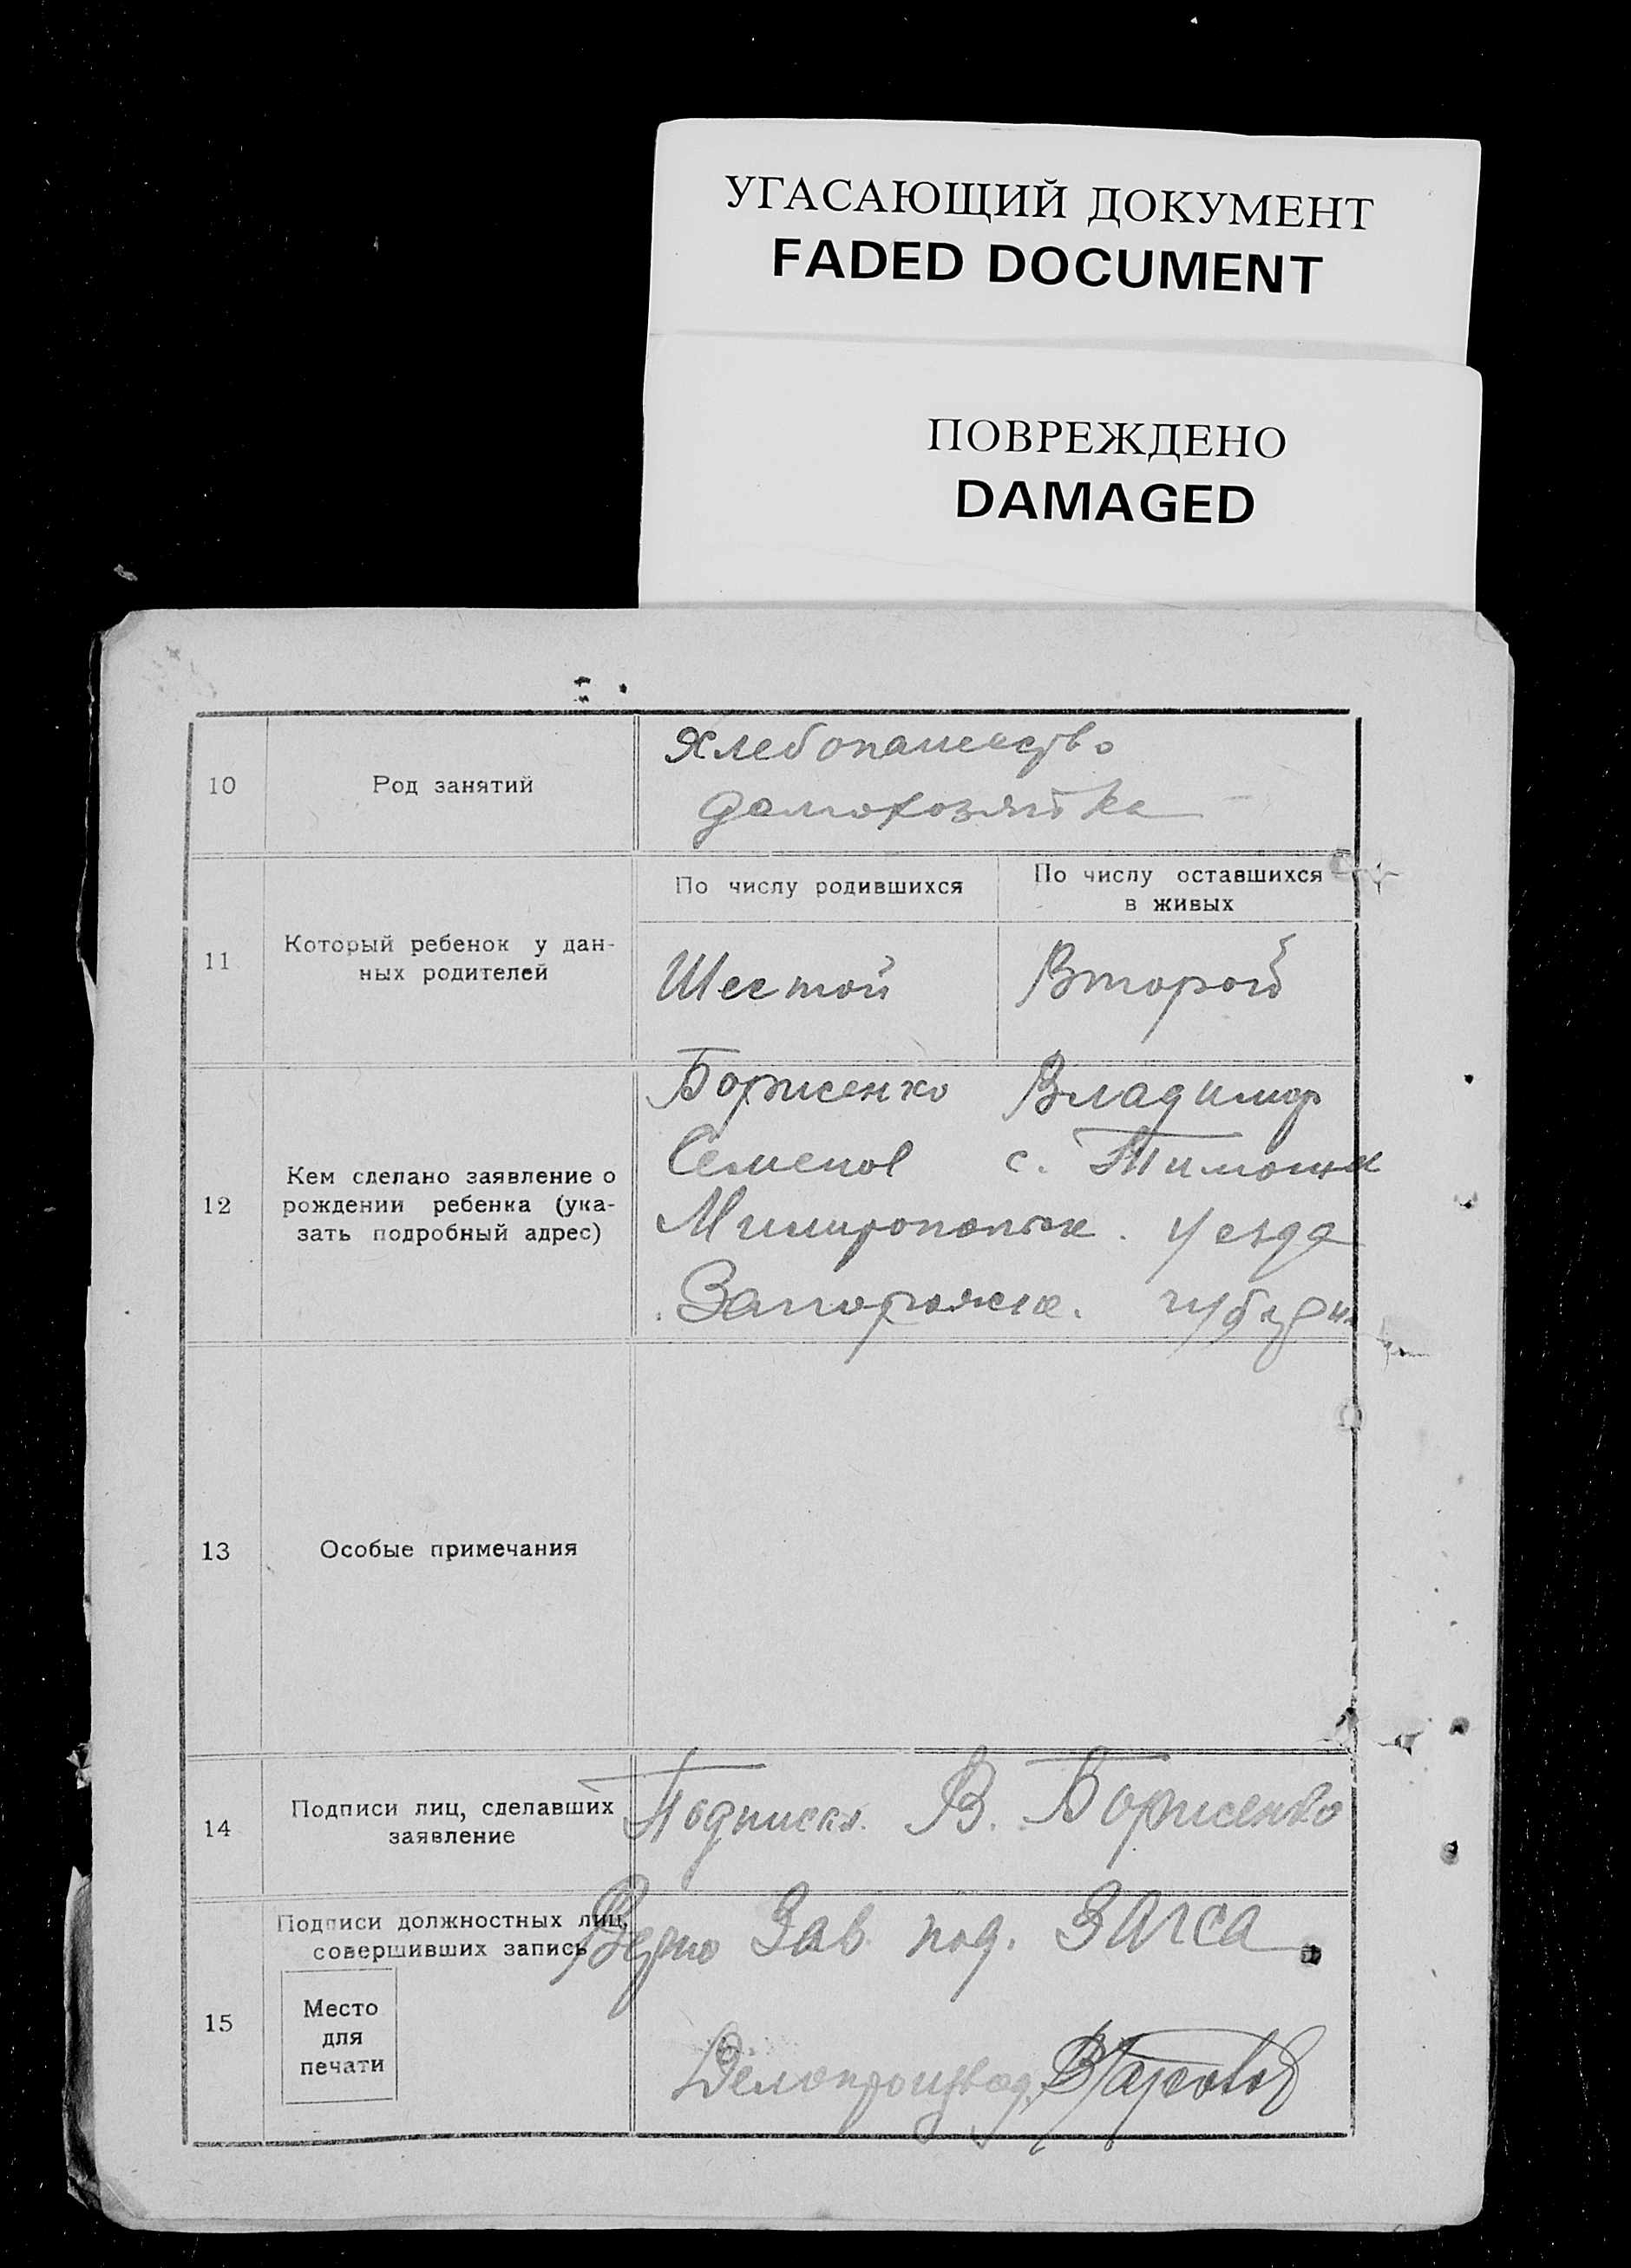 УГАСАЮЩИЙ ДОКУМЕНТ
FADED DOCUMENT
ПОВРЕЖДЕНО
DAMAGED
10
Род занятий
Хлебопашество
домохозяйка
11
Который ребенок у дан-
ных родителей
По числу родившихся
По числу оставшихся
в живых
Шестой
Второй
12
Кем сделано заявление о
рождении ребенка (ука-
зать подробный адрес)
Борисенко Владимир
Семенов с.
уезда
13
Особые примечания
14
Подписи лиц, сделавших
заявление
В. Борисенко
15
Подписи должностных лиц,
совершивших запись
Место
для
печати
Верно Зав. под. ЗАГСа
Делопроизвод.